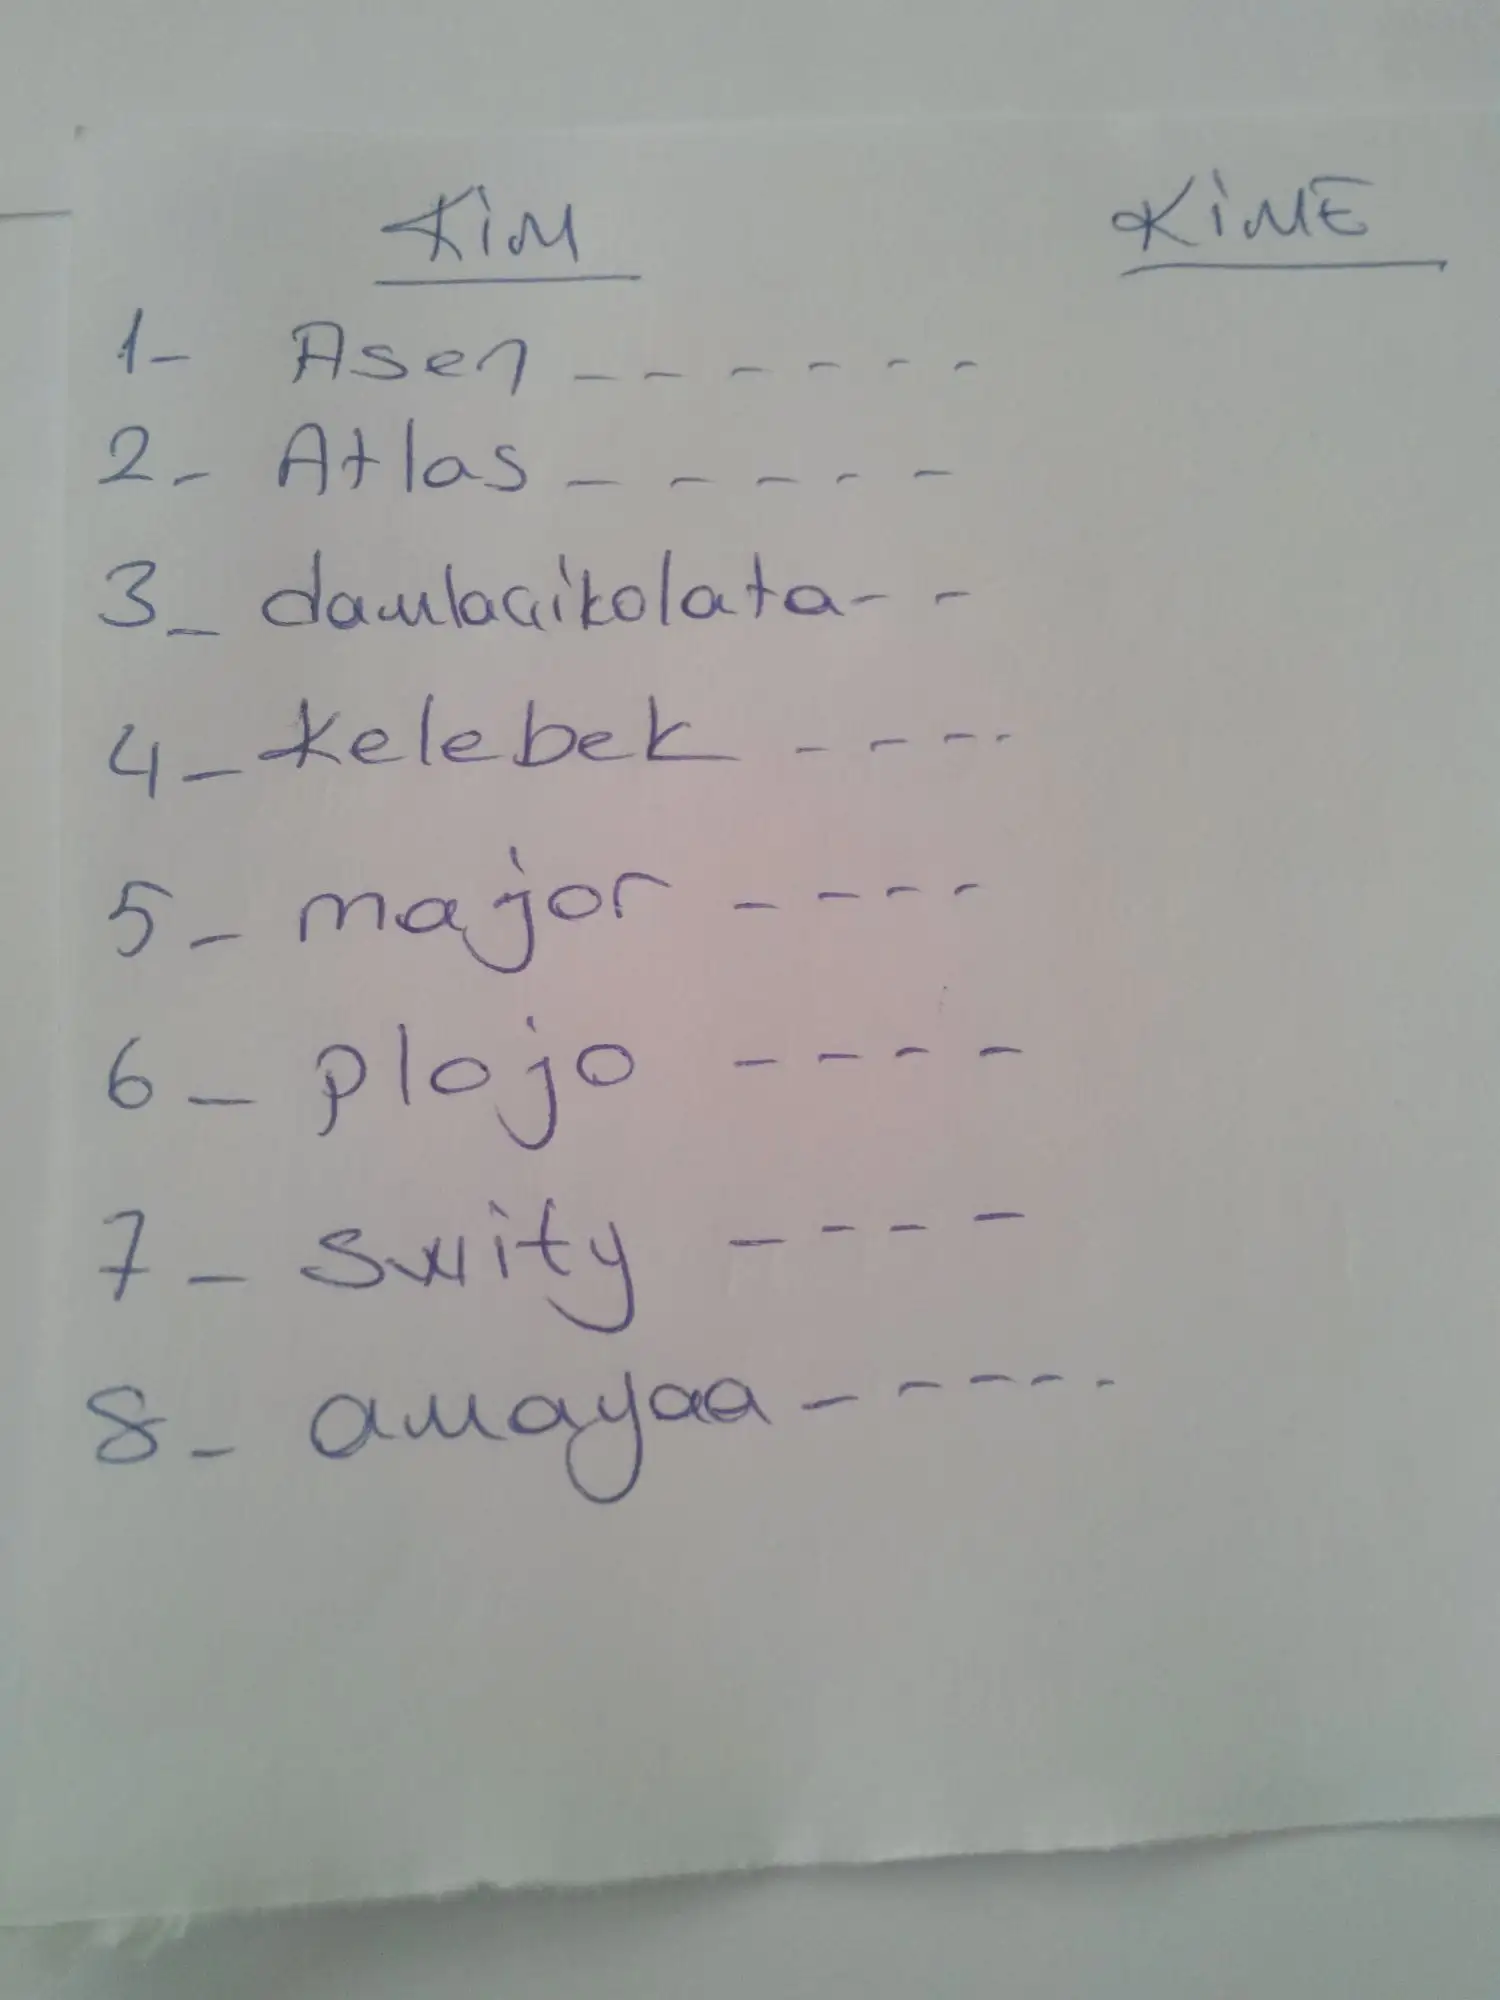 KİM KİME
1- Asen ------
2- Atlas -----
3- damlaçikolata--
4- kelebek ----
5- major ----
6- plojo ----
7- swity ----
8- amayaa -----